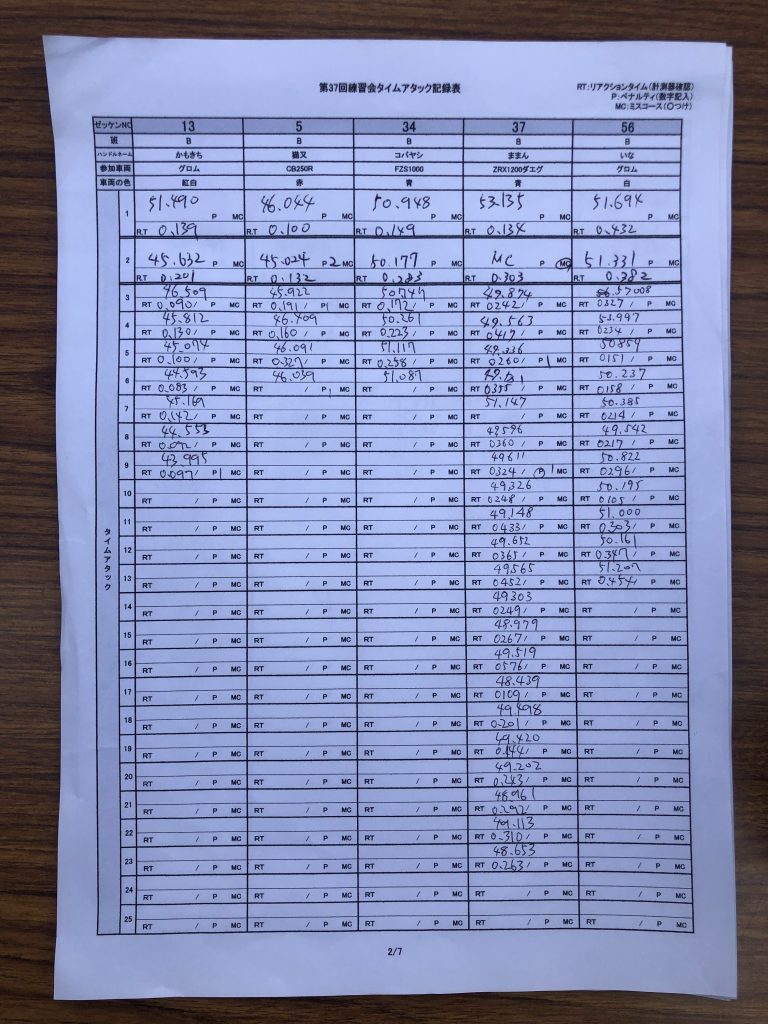 第37回練習会タイムアタック記録表
RT:リアクションタイム(計測器確認)
P:ペナルティ(数字記入)
MC:ミスコース(○つけ)
ゼッケンNO 13 5 34 37 56
班 B B B B B
ハンドルネーム かもきち 猫又 コバヤシ ままん いな
参加車両 グロム CB250R FZS1000 ZRX1200ダエグ グロム
車両の色 紅白 赤 青 青 白
タイムアタック
1 51.490 P MC 46.044 P MC 50.948 P MC 53.135 P MC 51.694 P MC
RT 0.139 RT 0.100 RT 0.149 RT 0.134 RT 0.432
2 45.632 P MC 45.024 P 2 MC 50.177 P MC MC P MC 51.331 P MC
RT 0.201 RT 0.132 RT 0.283 RT 0.303 RT 0.382
3 46.509 45.922 50.747 49.874 57008
RT 0.090 / P MC RT 0.191 / P 1 MC RT 0.172 / P MC RT 0242 / P MC RT 0327 / P MC
4 45.812 46.409 50.261 49.563 53.997
RT 0.130 / P MC RT 0.160 / P MC RT 0.223 / P MC RT 0419 / P MC RT 0234 / P MC
5 45.074 46.091 51.117 49.336 50859
RT 0.100 / P MC RT 0.327 / P MC RT 0.258 / P MC RT 0260 / P 1 MC RT 0151 / P MC
6 44.593 46.039 51.087 50.237
RT 0.083 / P MC RT / P 1 MC RT / P MC RT 0355 / P MC RT 0158 / P MC
7 45.169 51.147 50.385
RT 0.142 / P MC RT / P MC RT / P MC RT / P MC RT 0214 / P MC
8 44.553 49596 49.542
RT 0.092 / P MC RT / P MC RT / P MC RT 0360 / P MC RT 0217 / P MC
9 43.995 49611 50.822
RT 0.097 / P 1 MC RT / P MC RT / P MC RT 0324 / P 1 MC RT 0296 / P MC
10 49,326 50.195
RT / P MC RT / P MC RT / P MC RT 0248 / P MC RT 0105 / P MC
11 49.148 51.000
RT / P MC RT / P MC RT / P MC RT 0433 / P MC RT 0.303 / P MC
12 49.652 50.161
RT / P MC RT / P MC RT / P MC RT 0365 / P MC RT 0.347 / P MC
13 49.565 51.207
RT / P MC RT / P MC RT / P MC RT 0452 / P MC RT 0.454 / P MC
14 49303
RT / P MC RT / P MC RT / P MC RT 0249 / P MC RT / P MC
15 48.979
RT / P MC RT / P MC RT / P MC RT 0267 / P MC RT / P MC
16 49.519
RT / P MC RT / P MC RT / P MC RT 0576 / P MC RT / P MC
17 48.439
RT / P MC RT / P MC RT / P MC RT 0109 / P MC RT / P MC
18 49.498
RT / P MC RT / P MC RT / P MC RT 0.201 / P MC RT / P MC
19 49.420
RT / P MC RT / P MC RT / P MC RT 0.144 / P MC RT / P MC
20 49.202
RT / P MC RT / P MC RT / P MC RT 0.243 / P MC RT / P MC
21 48.961
RT / P MC RT / P MC RT / P MC RT 0.292 / P MC RT / P MC
22 49.113
RT / P MC RT / P MC RT / P MC RT 0.310 / P MC RT / P MC
23 48.653
RT / P MC RT / P MC RT / P MC RT 0.263 / P MC RT / P MC
24
RT / P MC RT / P MC RT / P MC RT / P MC RT / P MC
25
RT / P MC RT / P MC RT / P MC RT / P MC RT / P MC
2/7